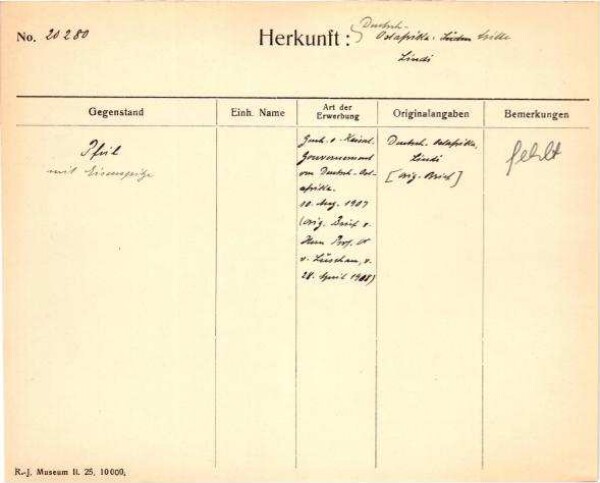 No. 20280
Herkunft: Deutsch-
Ostafrika.
Lindi
Gegenstand
Einh. Name
Art der
Erwerbung
Originalangaben
Bemerkungen
Pfeil
mit Eisenspitze
Gesch. v. Kaiserl.
Gouvernement
von Deutsch-Ost-
afrika.
10. Aug. 1907
(orig. Brief v.
Herrn Prof. Dr
v. Luschan, v.
28. April 1908)
Deutsch-Ostafrika,
Lindi
[orig. Brief]
fehlt
R.-J. Museum II. 25, 10000.